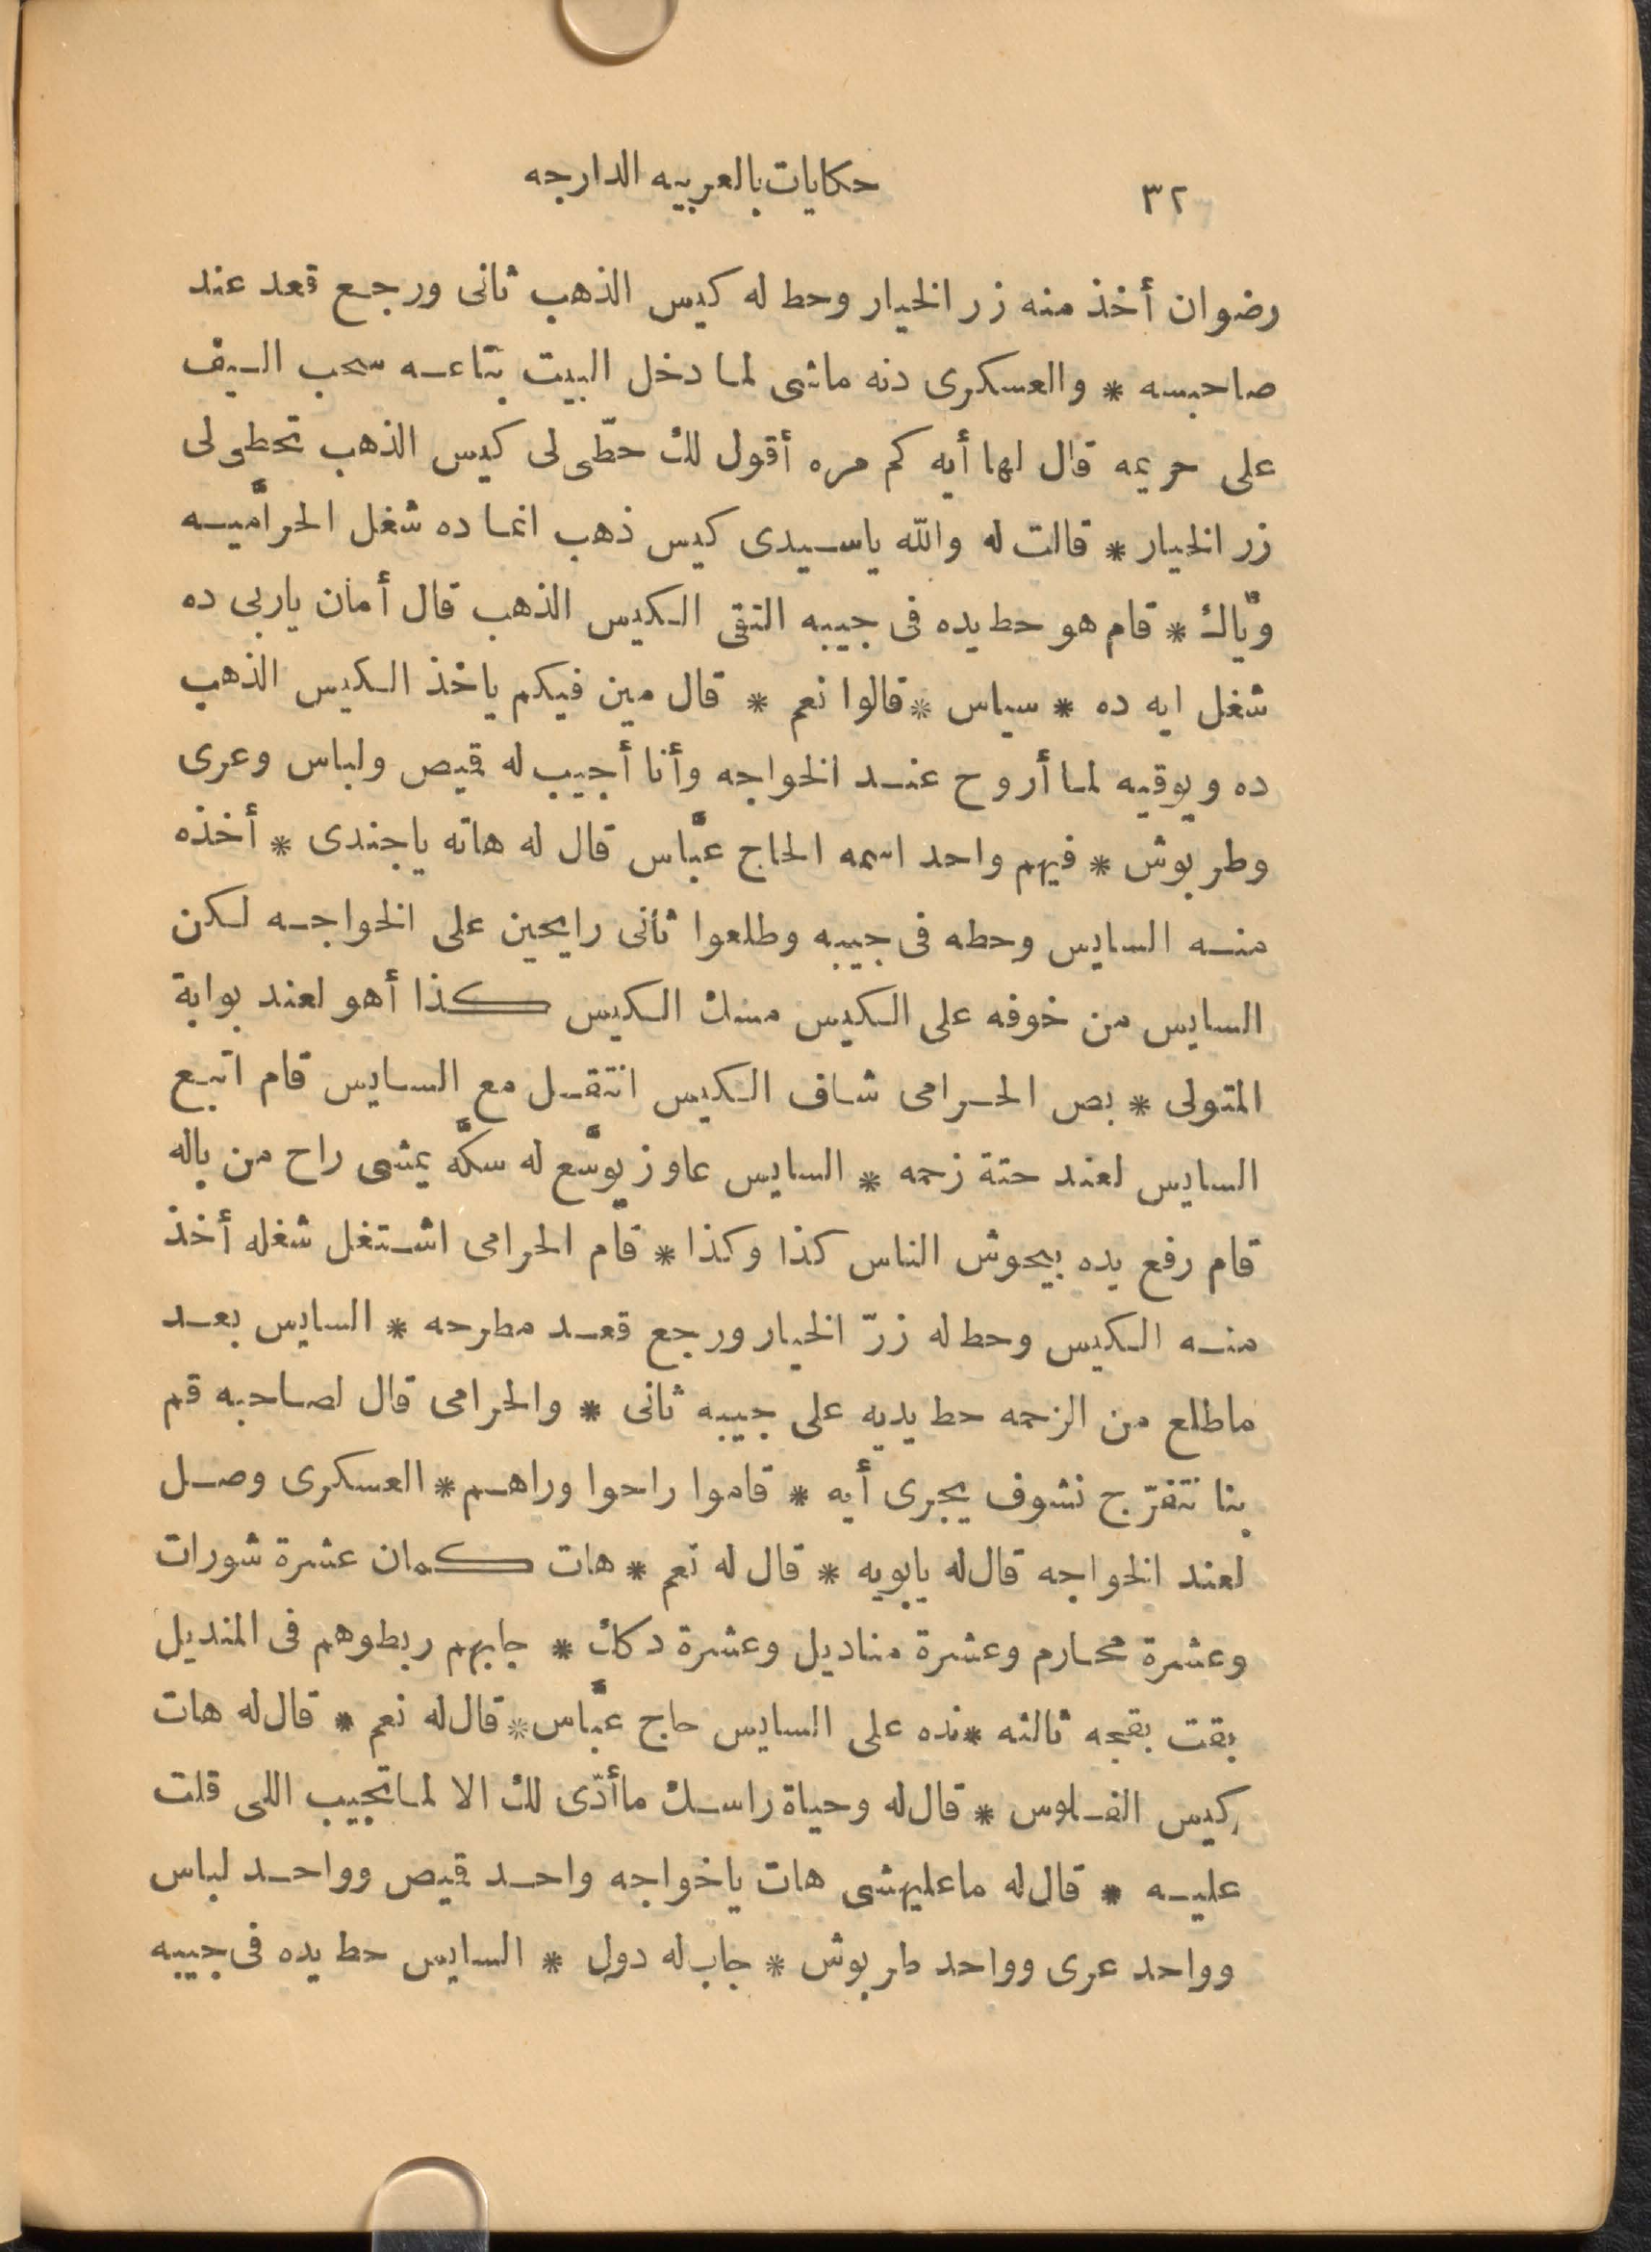 ٣٢ حكايات بالعربيه الدارجه
رضوان أخذ منه زر الخيار وحط له كيس الذهب ثانى ورجع قعد عند
صاحبه * والعسكرى دنه ماشى لما دخل البيت بتاعه سحب السيف
على حريمه قال لها أيه كم مره أقول لك حطّى لى كيس الذهب تحطى لى
زر الخيار * قالت له والله ياسيدى كيس ذهب انما ده شغل الحرّاميه
ويّاك * قام هو حط يده فى جيبه التقى الكيس الذهب قال أمان ياربى ده
شغل ايه ده * سياس * قالوا نعم * قال مين فيكم ياخذ الكيس الذهب
ده ويوقيه لما أروح عند الخواجه وأنا أجيب له قميص ولباس وعرى
وطربوش * فيهم واحد اسمه الحاج عبّاس قال له هاته ياجندى * أخذه
منه السايس وحطه فى جيبه وطلعوا ثانى رايحين على الخواجه لكن
السايس من خوفه على الكيس مسك الكيس كذا أهو لعند بوابة
المتولى * بص الحرامى شاف الكيس انتقل مع السايس قام اتبع
السايس لعند حتة زحمه * السايس عاوز يوسّع له سكّه يمشى راح من باله
قام رفع يده بيحوش الناس كذا وكذا * قام الحرامى اشتغل شغله أخذ
منه الكيس وحط له زرّ الخيار ورجع قعد مطرحه * السايس بعد
ماطلع من الزحمه حط يديه على جيبه ثانى * والحرامى قال لصاحبه قم
بنا نتفرّج نشوف يجرى أيه * قاموا راحوا وراهم * العسكرى وصل
لعند الخواجه قال له يابويه * قال له نعم * هات كمان عشرة شورات
وعشرة محارم وعشرة مناديل وعشرة دكك * جابهم ربطوهم فى المنديل
بقت بقجه ثالثه * نده على السايس حاج عبّاس * قال له نعم * قال له هات
كيس الفلوس * قال له وحياة راسك ماأدّى لك الا لما تجيب اللى قلت
عليه * قال له ماعليهشى هات ياخواجه واحد قميص وواحد لباس
وواحد عرى وواحد طربوش * جاب له دول * السايس حط يده فى جيبه